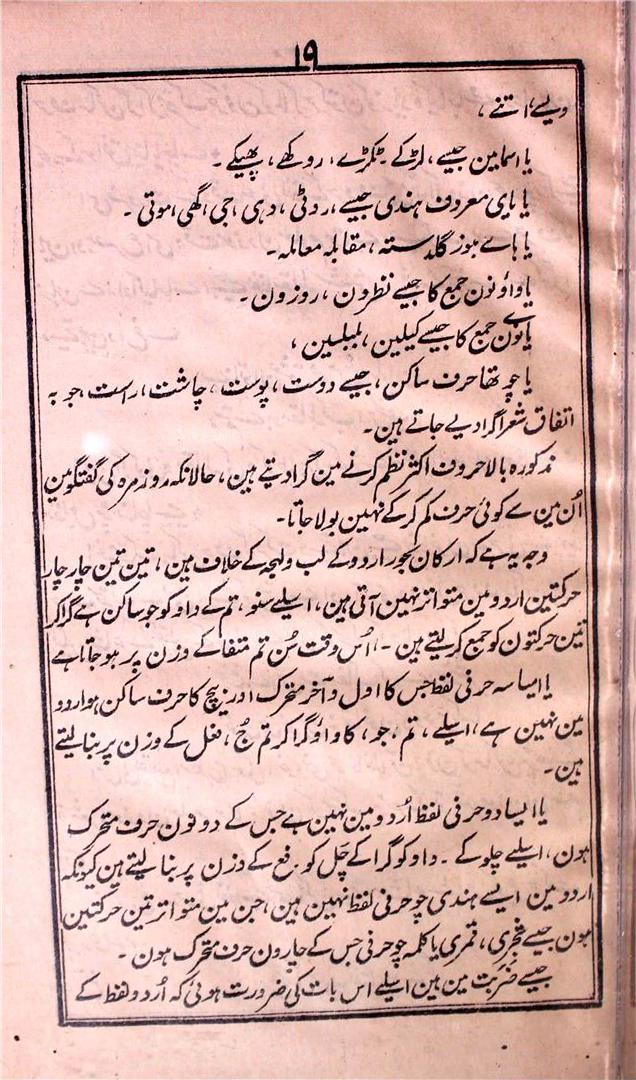 ۱۹
ویسے، اتنے،
یا اسما مین جیسے، لڑکے۔ ٹکڑے، روکھے، پھیکے۔
یا یای معروف ہندی جیسے، روٹی، دہی، جی، گھی، موتی۔
یا ہاے ہوز گلدستہ، مقابلہ معاملہ۔
یا واؤ نون جمع کا جیسے نظرون، روزون۔
یا ے نون جمع کا جیسے کیلین، بلبلین،
یا چوتھا حرف ساکن، جیسے دوست، پوست، چاشت، راست، جو بہ
اتفاق شعرا گرا دیے جاتے ہین۔
مذکورہ بالا حروف اکثر نظم کرنے مین گرا دیتے ہین، حالانکہ روزمرہ کی گفتگو مین
اُن مین سے کوئی حرف کم کر کے نہین بولا جاتا۔
وجہ یہ ہے کہ ارکان بحور اردو کے لب و لہجہ کے خلاف ہین، تین تین چار چار
حرکتین اردو مین متواتر نہین آتی ہین، اسلیے سنو، تم کے واو کو جو ساکن ہے گرا کر
تین حرکتون کو جمع کر لیتے ہین۔ اُس وقت سُن تم متفا کے وزن پر ہو جاتا ہے
یا ایسا سہ حرفی لفظ جس کا اول و آخر متحرک اور بیچ کا حرف ساکن ہو اردو
مین نہین ہے، اسلیے، تم، جو، کا واؤ گرا کر تم جُ، فعل کے وزن پر بنا لیتے
ہین۔
یا ایسا دو حرفی لفظ اُردو مین نہین ہے جس کے دونون حرف متحرک
ہون، اسلیے چلو کے۔ واو کو گرا کے چَل کو۔ فع کے وزن پر بنا لیتے ہین کیونکہ
اردو مین ایسے ہندی چو حرفی لفظ نہین ہین، جن مین متواتر تین حرکتین
ہون جیسے شجری، قمری یا کلمہ چو حرفی جس کے چارون حرف متحرک ہون۔
جیسے ضَرَبَت مین ہین اسلیے اس بات کی ضرورت ہوئی کہ اُردو لفظ کے